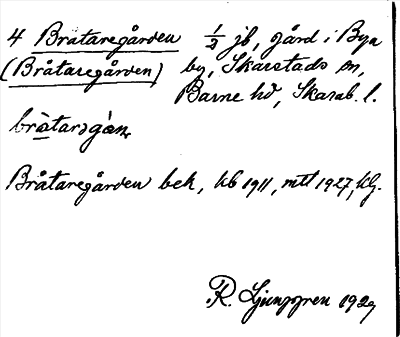 4 Brataregården 1/2 jb, gård i Bya
(Bråtaregården) by, Skarstads sn,
Barne hd, Skarab. l.
bråtarəgån
Bråtaregården bek, kb 1911, mtl 1927, klg.
R. Ljunggren 1929